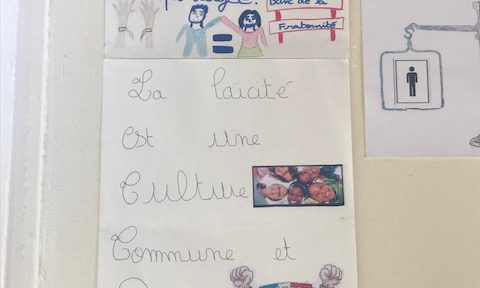 Base de la
Fraternité
La laïcité
est une
Culture
Commune et